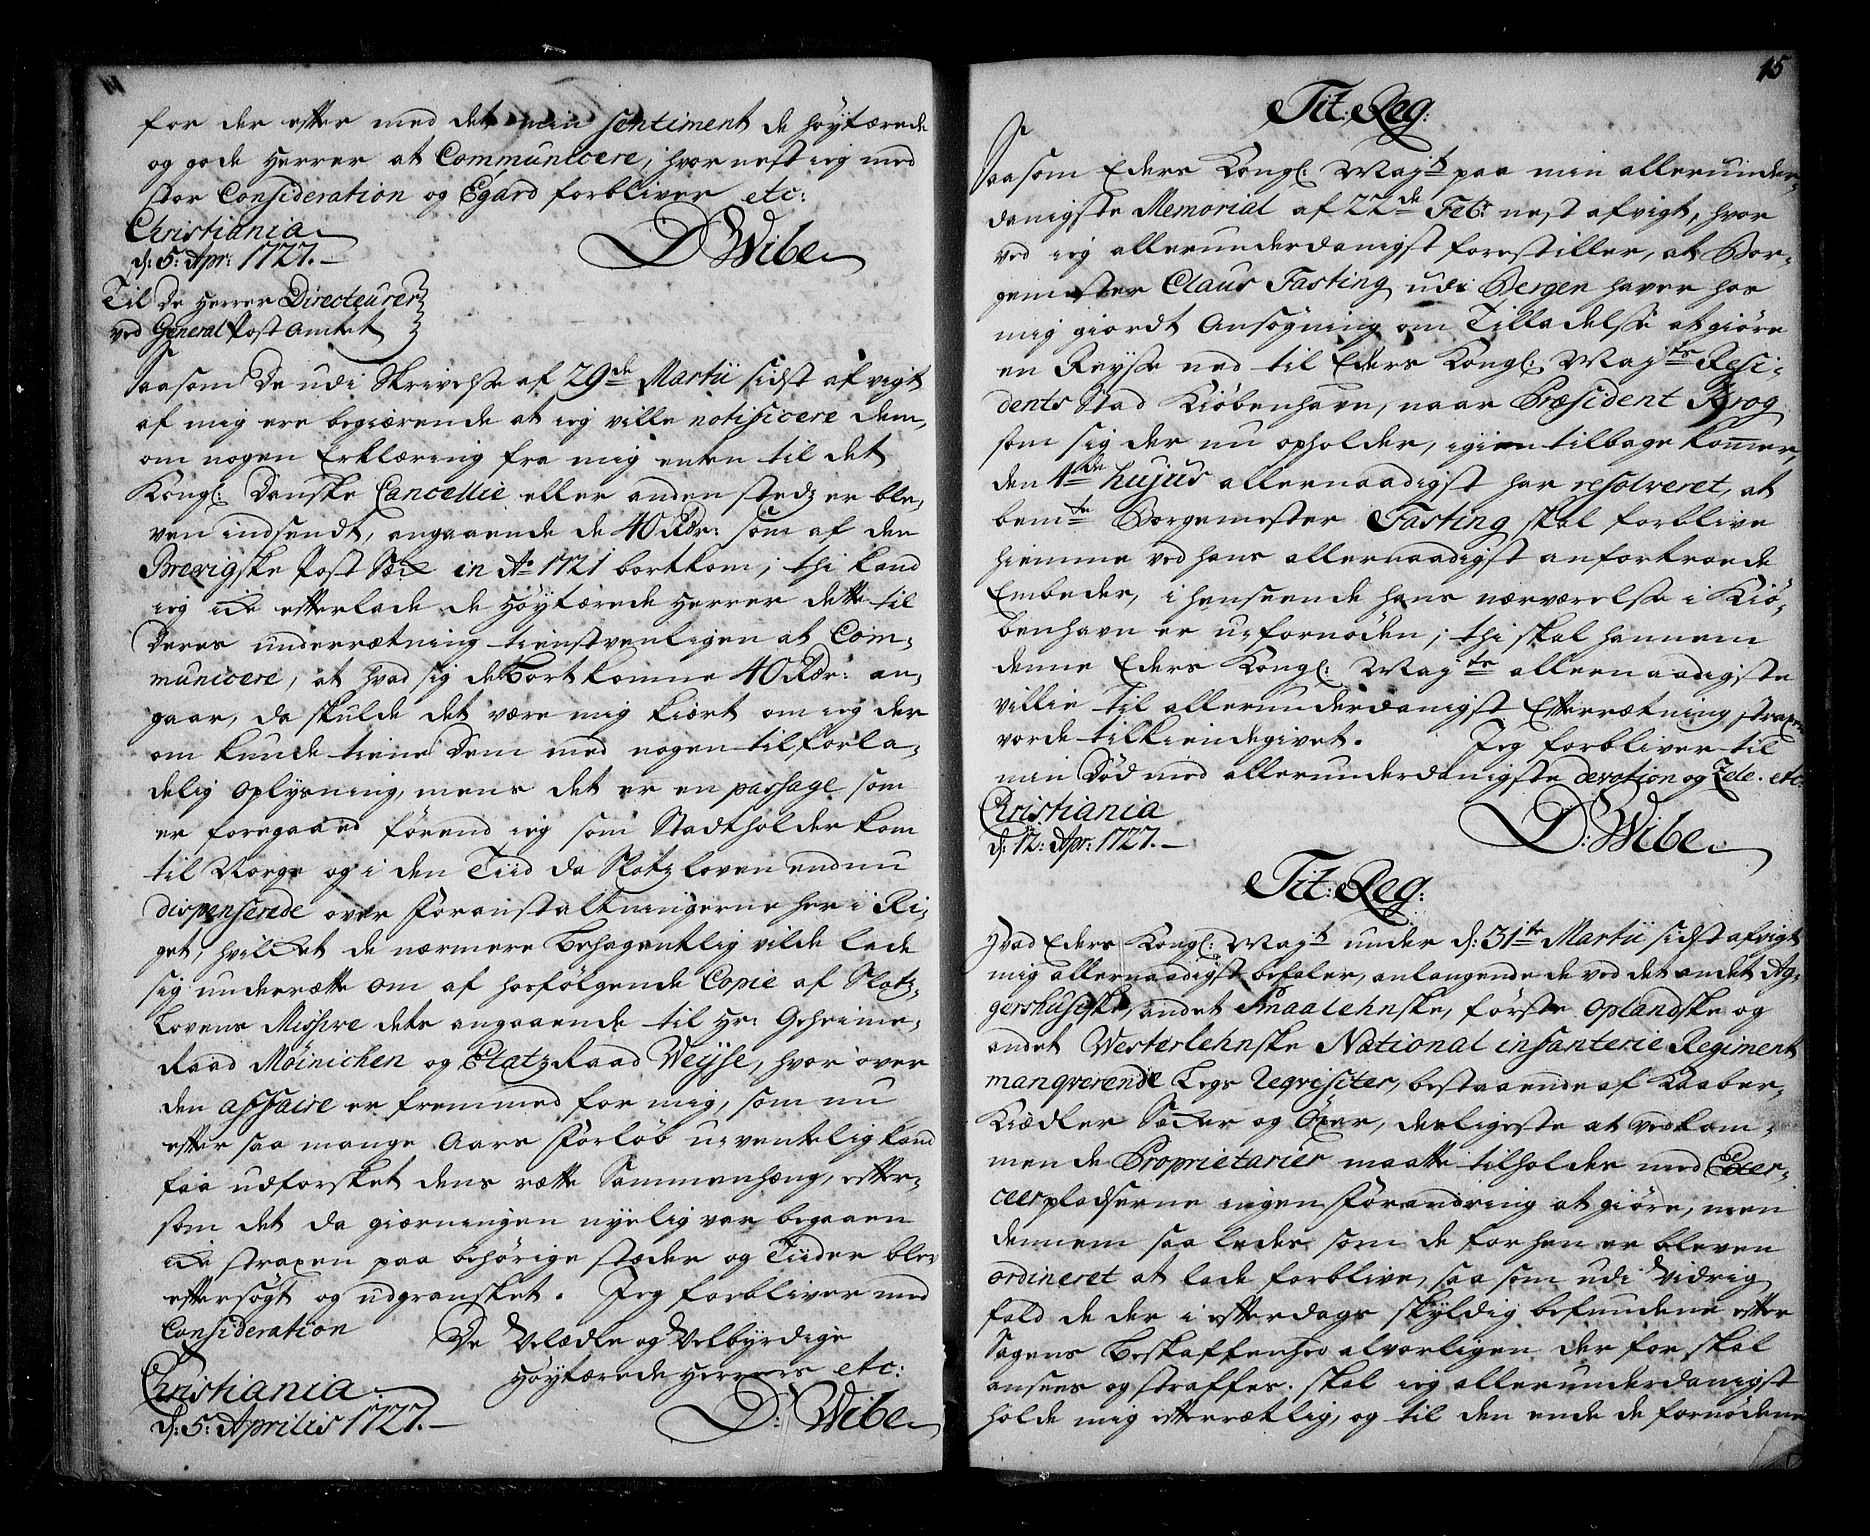 for der efter med det min sentiment de høytærede
og gode Herrer at Communicere; hvornest ieg med
stor Consideration og Egard forbliver etc:
Christiania
d: 5: Apr: 1727.
D Wibe
Til De Herrer Directeurer
ved General Post Amtet
Saasom De udi Skrivelse af 29de Martii sidst afvigt
af mig ere begiærende at ieg ville notificere dem,
om nogen Erklæring fra mig enten til det
Kongl: Danske Cancellie eller anden stedz er ble-
ven indsendt, angaaende de 40 Rdr: som af den
Brevigske Post Sæk in Ao 1721 bortkom; thi kand
ieg icke efterlade de Høytærede Herrer dette til
Deres underrætning tienstvenligen at Com-
municere, at hvad sig de bortkomne 40 Rdr: an-
gaar, da skulde det være mig kiært om ieg der
om kunde tiene Dem med nogen tilforla-
delig Oplysning, mens det er en passage som
er foregaaed førend ieg som Stadtholder kom
til Norge og i den Tiid da Slotz Loven endnu
dispenserede over Foranstaltningerne her i Ri-
get, hvilket de nærmere behagentlig vilde lade
sig underrætte om af hosfølgende Copie af Slotz-
Lovens Missive dets angaaende til Hr: Geheime-
Raad Møinichen og Etatz Raad Weyse, hvor over
den affaire er fremmed for mig, som nu
efter saa mange Aars Forløb uventelig kand
faa udforsket dens rætte Sammenhæng, efter-
som det da giærningen nyelig var begaaen
icke straxen paa behørige stæder og Tiider blev
eftersøgt og udgransket. Jeg forbliver med
Consideration De Velædle og Velbyrdige
Høytærede Herrers etc:
Christiania
d: 5: Aprilis 1727.
D: Wibe
15
Tit: Reg:
Saasom Eders Kongl: Mayt paa min allerunder-
danigste Memorial af 22de Febr: nest afvigt, hvor
ved ieg allerunderdanigst forestiller, at Bor-
gemester Claus Fasting udi Bergen haver hos
mig giordt Ansøgning om Tilladelse at giøre
en Reyse ned til Eders Kongl: Mayts Resi-
dents Stad Kiøbenhavn, naar Præsident Krog
som sig der nu opholder, igien tilbage kommer,
den 1ste hujus allernaadigst har resolveret, at
bemte Borgemester Fasting skal forblive
hiemme ved hans allernaadigst anfortroede
Embeder, i henseende hans nærværelse i Kiø-
benhavn er ufornøden; thi skal hannem
denne Eders Kongl: Mayts allernaadigste
villie til allerunderdanigst Efterrætning straxen
vorde tilkiendegivet. Jeg forbliver til
min Død med allerunderdanigste devotion og Zele. etc:
Christiania
d: 12: Apr: 1727.
D: Wibe
Tit: Reg:
Hvad Eders Kongl: Mayt under d: 31te Martii sidst afvigt
mig allernaadigst befaler, anlangende de ved det andet Ag-
gershusiske, andet Smaalehnske, første Oplandske og
andet Westerlehnske National infanterie Regiment
manqverende Legs Reqvisiter, bestaaende af Kaaber-
Kiædler Sæcker og Øxer, desligeste at vedkom-
mende Proprietarier maatte tilholdes med Exer-
ceer pladserne ingen Forandring at giøre, men
dennem saaledes som de forhen er bleven
ordineret at lade forblive, saa som udi Vidrig
fald de der i efterdags skyldig befundene efter
Sagens Beskaffenhed alvorligen derfor skal
ansees og straffes. Skal ieg allerunderdanigst
holde mig efterrætlig, og til den ende de fornødene